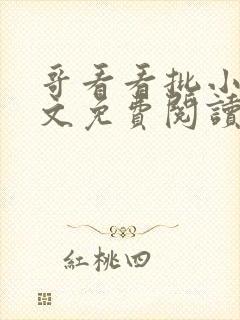 哥看看批小
文免費閱讀
紅桃四